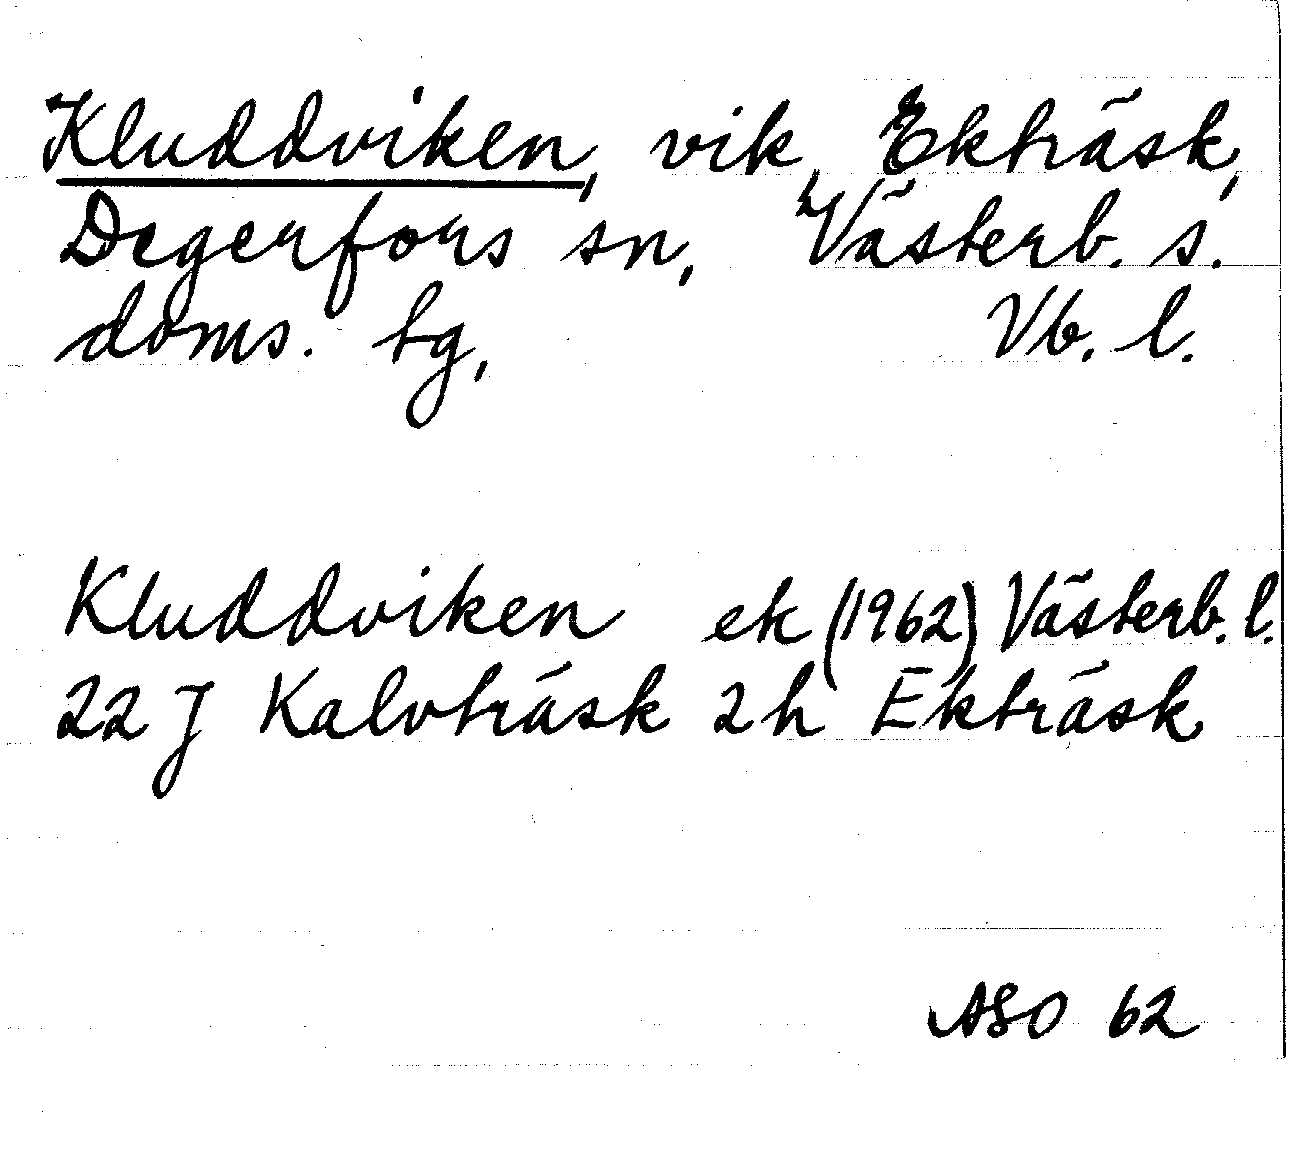 Kluddviken, vik, Ekträsk,
Degerfors sn, Västerb. s.
doms. tg, Vb. l.
Kluddviken ek (1962) Västerb. l.
22 J Kalvträsk 2h Ekträsk
ASO 62